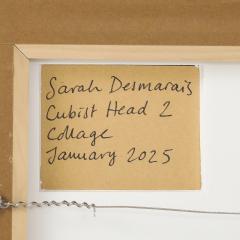 Sarah Desmarais
Cubist Head 2
Collage
January 2025